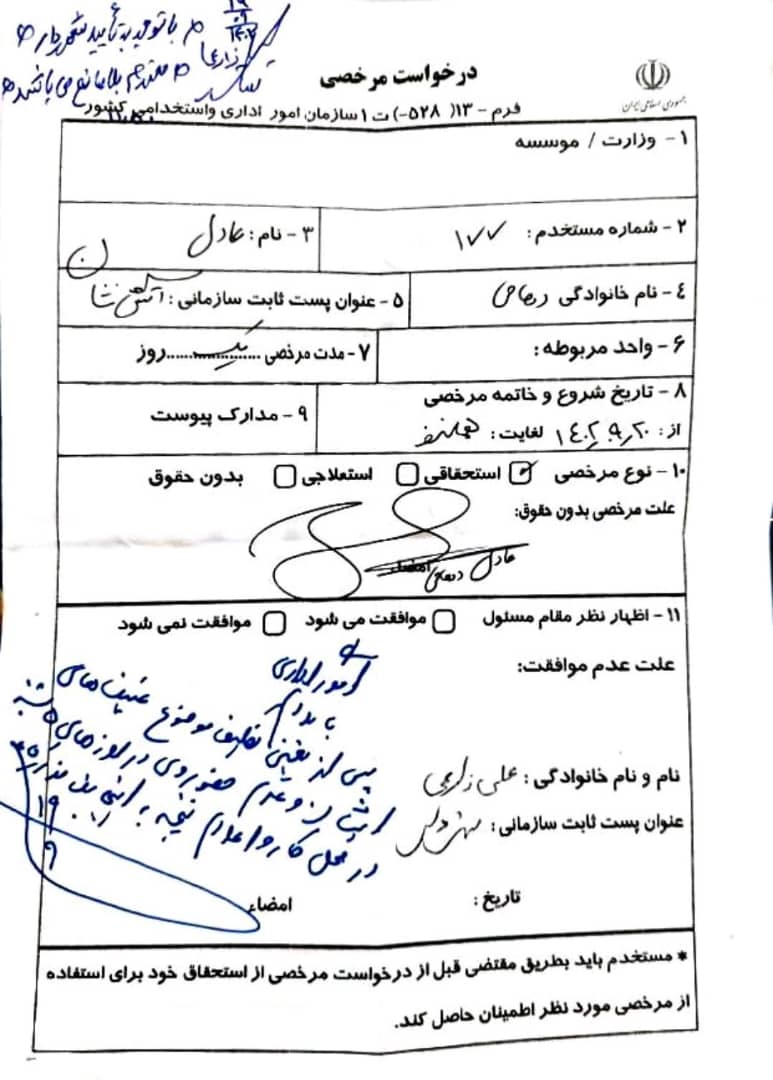 با توجه به تأیید شهردار
بلامانع می باشد
زارعی
درخواست مرخصی
جمهوری اسلامی ایران
فرم - ۱۳( ۵۲۸-) ت ۱ سازمان امور اداری واستخدامی کشور
۱- وزارت / موسسه
۲- شماره مستخدم: ۱۷۷
۳- نام: عادل
۴- نام خانوادگی
۵- عنوان پست ثابت سازمانی: آتش نشان
۶- واحد مربوطه:
۷- مدت مرخصی ....یک....روز
۸- تاریخ شروع و خاتمه مرخصی
از: ۱۴۰۲,۹,۲۰ لغایت: همانروز
۹- مدارک پیوست
۱۰- نوع مرخصی استحقاقی استعلاجی بدون حقوق
علت مرخصی بدون حقوق:
امضاء
عادل
۱۱- اظهار نظر مقام مسئول موافقت می شود موافقت نمی شود
علت عدم موافقت:
امور اداری
با سلام
پس از تعیین تکلیف موضوع شیفت های
و عدم حضور وی در روزهای
در محل کار و اعلام نتیجه
۱۹
۹
نام و نام خانوادگی: علی زارعی
عنوان پست ثابت سازمانی:
تاریخ:
امضاء
* مستخدم باید بطریق مقتضی قبل از درخواست مرخصی از استحقاق خود برای استفاده
از مرخصی مورد نظر اطمینان حاصل کند.